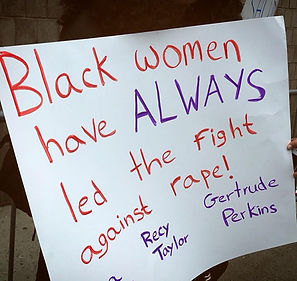 Black women
have ALWAYS
led the fight
against rape!
Recy Taylor
Gertrude Perkins